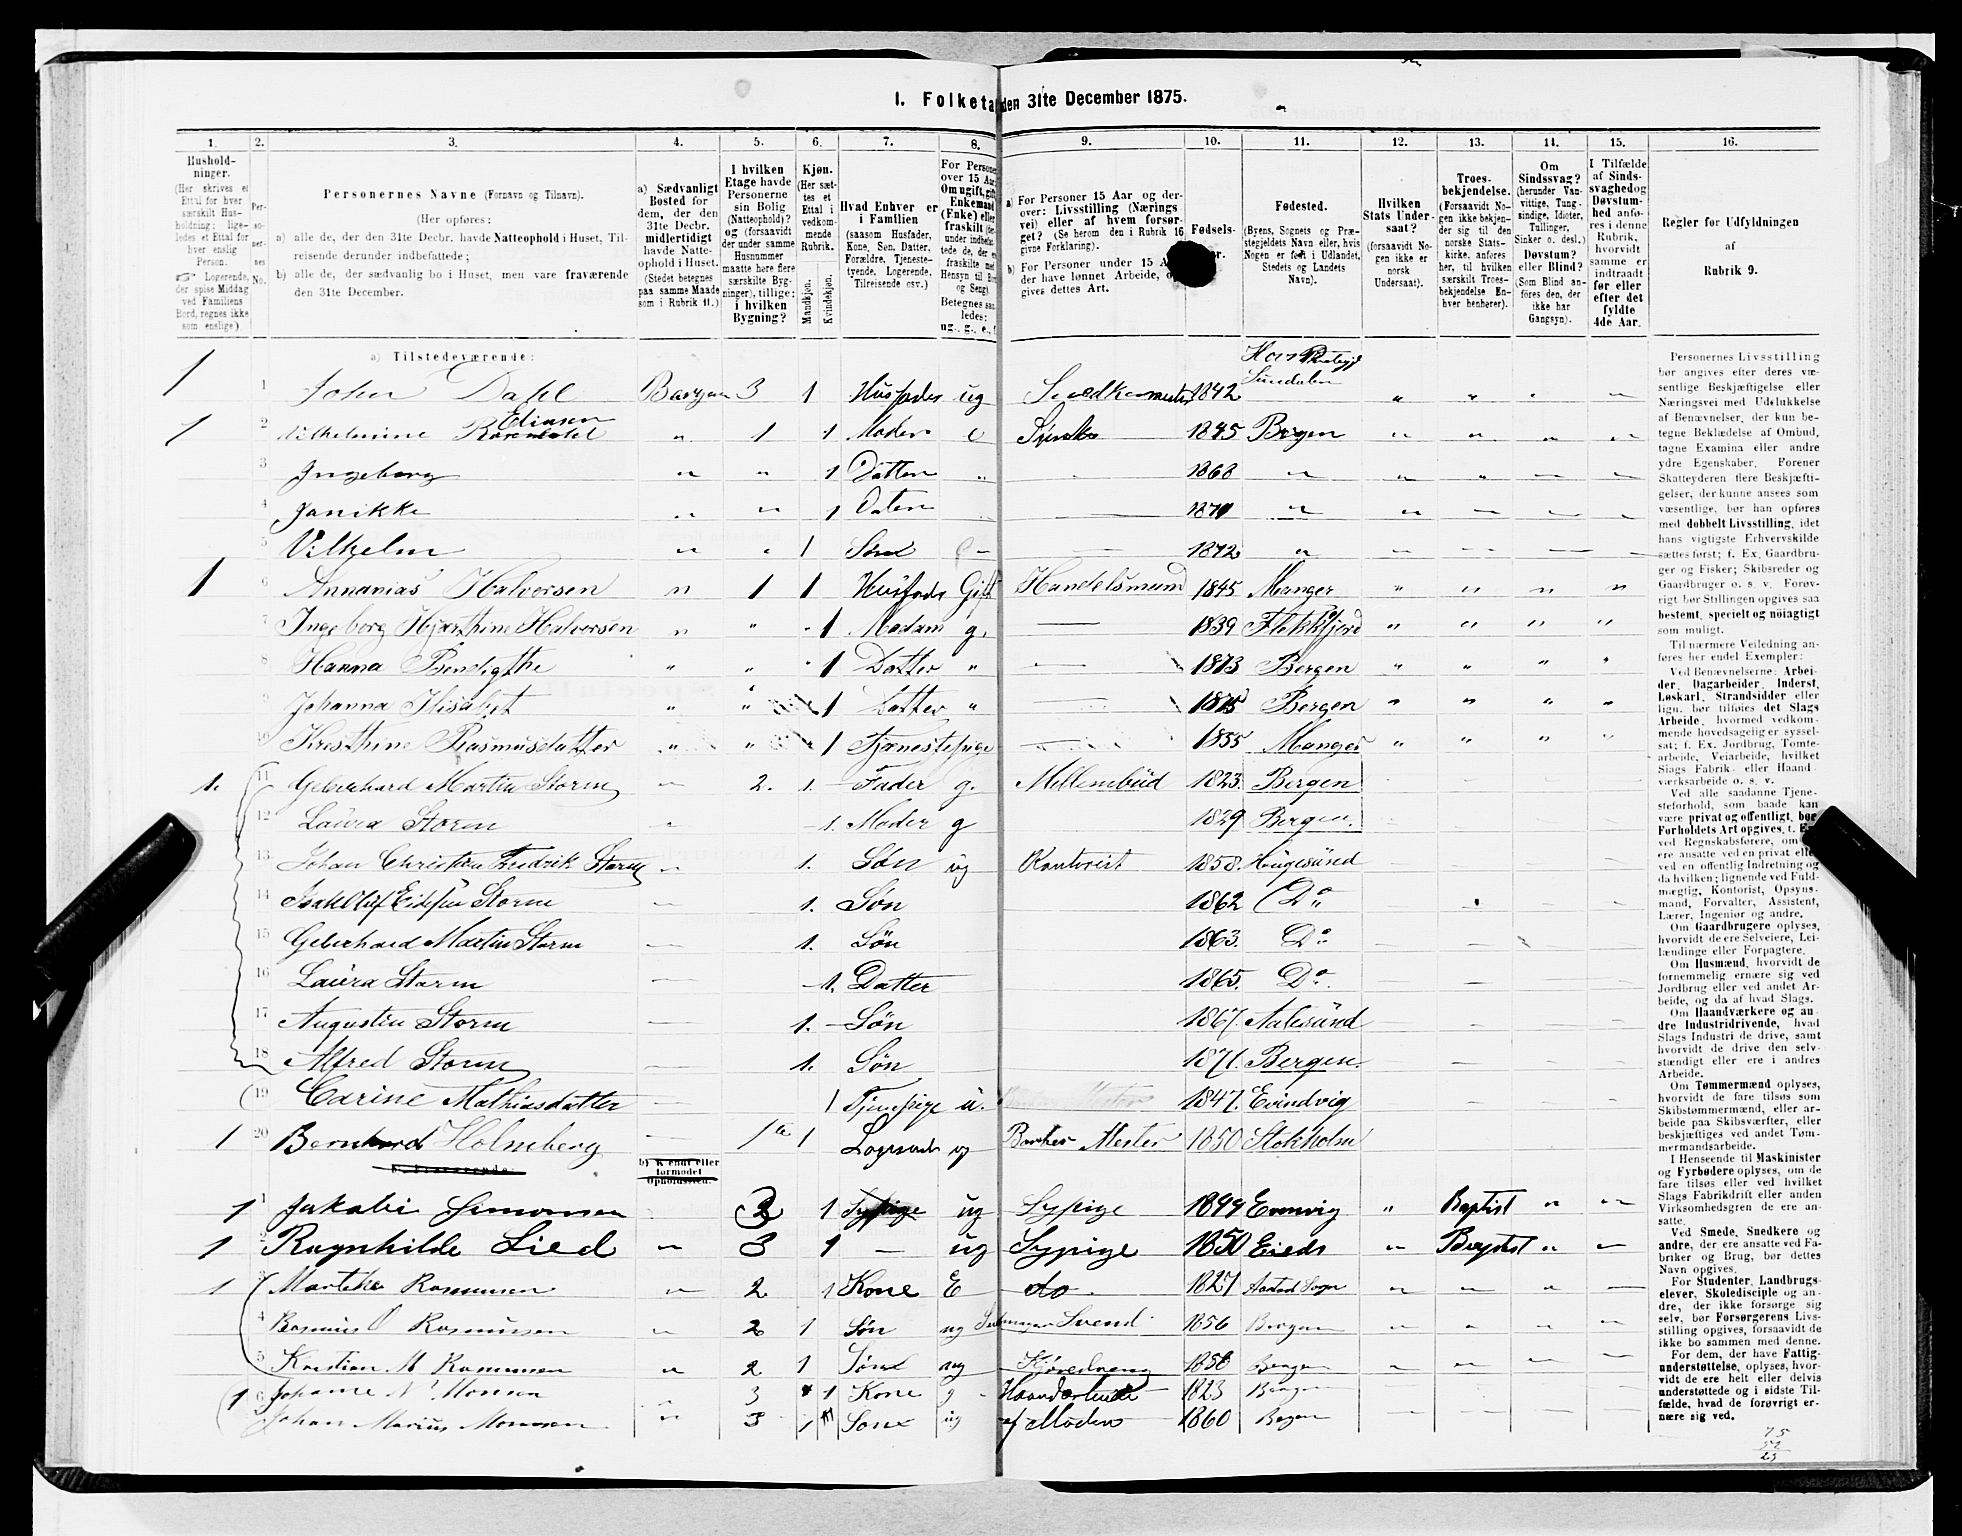 I. Folketa den 31te December 1875.
1. 2. 3. 4. 5. 6. 7. 8. 9. 10. 11. 12. 13. 14. 15. 16.
Hushold-
ninger.
(Her skrives et
Ettal for hver
særskilt Hus-
holdning; lige-
ledes et Ettal for
hver enslig
Person.
☞ Logerende,
der spise Middag
ved Familiens
Bord, regnes ikke
som enslige).
Per-
so-
ner-
nes
No.
Personernes Navne (Fornavn og Tilnavn).
(Her opføres:
a) alle de, der den 31te Decbr. havde Natteophold i Huset, Til-
reisende derunder indbefattede;
b) alle de, der sædvanlig bo i Huset, men vare fraværende
den 31te December.
a) Sædvanligt
Bosted for
dem, der den
31te Decbr.
midlertidigt
havde Natte-
ophold i Huset.
(Stedet betegnes
paa samme Maade
som i Rubrik 11.)
I hvilken
Etage havde
Personerne
sin Bolig
(Natteophold)?
og (forsaavidt
der under samme
Husnummer
maatte høre flere
særskilte Byg-
ninger), tillige:
i hvilken
Bygning?
Kjøn.
(Her sæt-
tes et
Ettal i
vedkom-
mende
Rubrik.
Mandkjøn.
Kvindekjøn.
Hvad Enhver er
i Familien
(saasom Husfader,
Kone, Søn, Datter,
Forældre, Tjeneste-
tyende, Logerende,
Tilreisende osv.)
For Persone
over 15 Aar
Om ugift, gift
Enkemand
(Enke) eller
fraskilt
Betegnes saa
ledes:
ug., g., e., f
a) For Personer 15 Aar og der-
over: Livsstilling (Nærings
vei) eller af hvem forsør-
get? (Se herom den i Rubrik 16
givne Forklaring).
b) For Personer under 15 A
der have lønnet Arbeide, o
gives dettes Art.
Fødsels-
Fødested.
(Byens, Sognets og Præ-
stegjeldets Navn eller, hvis
Nogen er født i Udlandet,
Stedets og Landets
Navn).
Hvilken
Stats Under-
saat?
(forsaavidt No-
gen ikke er
norsk
Undersaat).
Troes-
bekjendelse.
(Forsaavidt No-
gen ikke bekjen-
der sig til den
norske Stats-
kirke, anføres
her, til hvilken
særskilt Troes-
bekjendelse En-
hver henhører).
Om
Sindssvag?
(herunder Van-
vittige, Tung-
sindige, Idioter,
Tullinger,
Sinker o. desl.)
Døvstum?
eller Blind?
(Som Blind an-
føres den, der
ikke har
Gangsyn).
I Tilfælde
af Sinds-
svaghed og
Døvstum-
hed anfø-
res i denne
Rubrik,
hvorvidt
samme er
indtraadt
før eller
efter det
fyldte
4de Aar.
Regler før Udfyldningen
af
Rubrik 9.
a) Tilstedeværende:
1 1 John Dahl Bergen 3 1 Husfader ug 1842 Sundalen
1 2 Vilhelmine Rosendahl Eliasen " 1 1 Moder e 1845 Bergen
3 Ingeborg " " 1 Datter " 1868 "
4 Janikke " " 1 Daten 1870 "
5 Vilhelm " " 1 Søn 1872 "
1 6 Annanias Halvorsen " 1 1 Husfader Gift Handelsmand 1845 Manger " " " "
7 Ingeborg Hjærthine Halvorsen " " 1 Madam g. 1839 Flekkfjord " " " "
8 Hanna Bendigthe " " 1 Datter " 1873 Bergen " " " "
9 Johanna Elisabet " " 1 Datter " 1875 Bergen " " " "
10 Kristhine Rasmusdatter " " 1 Tjænestepige 1835 Manger " " " "
1. 11 Geberhard Martin Storm 2. 1. Fader g. 1823. Bergen
12 Laura Storm 1. Moder g 1829 Bergen.
13 Johan Christian Fredrik Storm 1. Søn ug Kontorist 1858. Haugesund
14 Storm 1. Søn 1862 Do
15 Geberhard Martin Storm 1. Søn 1863. Do
16 Laura Storm 1. Datter 1865. Do.
17 Augustin Storm 1. Søn 1867. Aalesund
18 Alfred Storm 1. Søn 1871. Bergen.
19 Carine Mathiasdatter 1 Tjenspige u. 1847. Evindvig
1 20 Bernhard Holmberg 1 1 Logerende ug Mester 1850 Stokholm
b) Kjendt eller
formodet
Opholdssted.
1 1 Jakobi Simonsen 2 1 Sypige ug Sypige 1844 Evenvig " Baptist " "
1 2 Ragnhilde Lied " 3 1 ug Sypige 1850 Eieds " Baptist " "
1 3 Marthe Rasmusen " 2 1 Kone E do 1827 Sogn " " " "
4 Rasmus O Rasmusen " 2 1 Søn ug Svend 1856 Bergen " " " "
5 Kristian M Rasmusen " 2 1 Søn ug 1858 Bergen " " " "
1 6 Johanne M Monsen 3 1 Kone g Haandarbeide 1823 Bergen
Johan Marius Monsen " 3 1 Søn ug af Moderen 1860 Bergen
Personernes Livsstilling
bør angives efter deres væ-
sentlige Beskjæftigelse eller
Næringsvei med Udelukkelse
af Benævnelser, der kun be-
tegne Beklædelse af Ombud,
tagne Examina eller andre
ydre Egenskaber. Forener
Skatteyderen flere Beskjæfti-
gelser, der kunne ansees som
væsentlige, bør han opføres
med dobbelt Livsstilling, idet
hans vigtigste Erhvervskilde
sættes først; f. Ex. Gaardbru-
ger og Fisker; Skibsreder og
Gaardbruger o. s. v. Forøv-
rigt bør Stillingen opgives saa
bestemt, specielt og nøiagtigt
som muligt.
Til nærmere Veiledning an-
føres her endel Exempler:
Ved Benævnelserne: Arbei-
der, Dagarbeider, Inderst,
Løskarl, Strandsidder eller
lign. bør tilføies det Slags
Arbeide, hvormed vedkom-
mende hovedsagelig er syssel-
sat; f. Ex. Jordbrug, Tømte-
arbeide, Veiarbeide, hvilket
Slags Fabrik- eller Haand-
værksarbeide o. s. v.
Ved alle saadanne Tjene-
steforhold, som baade kan
være privat og offentligt, bør
Forholdets Art opgives, t. E
ved Regnskabsførere, om
ere ansatte ved en privat elle
ved en offentlig Indretning og
da hvilken; lignende ved Fuld-
mægtig, Kontorist, Opsyns-
mand, Forvalter, Assistent,
Lærer, Ingeniør og andre.
Om Gaardbrugere oplyses,
hvorvidt de ere Selveiere, Lei-
lændinge eller Forpagtere.
Om Husmænd, hvorvidt de
fornemmelig ernære sig ved
Jordbrug eller ved andet Ar-
beide, og da af hvad Slags.
Om Haandværkere og an-
dre Industridrivende, hvad
Slags Industri de drive, samt
hvorvidt de drive den selv-
stændigt eller ere i andres
Arbeide.
Om Tømmermænd oplyses,
hvorvidt de fare tilsøs som
Skibstømmermænd, eller ar-
beide paa Skibsværfter, eller
beskjæftiges ved andet Tøm-
mermandsarbeide.
I Henseende til Maskinister
og Fyrbødere oplyses, om de
fare tilsøs eller ved hvilket
Slags Fabrikdrift eller anden
Virksomhedsgren de ere an-
satte.
Ved Smede, Snedkere og
andre, der ere ansatte ved Fa-
briker og Brug, bør dettes
Navn opgives.
For Studenter, Landbrugs-
elever, Skoledisciple og an-
dre, der ikke forsørge sig
selv, bør Forsørgerens Livs-
stilling opgives, forsaavidt de
ikke bo sammen med denne.
For dem, der have Fattig-
understøttelse, oplyses, hvor-
vidt de ere helt eller delvis
understøttede og i sidste Til-
fælde, hvad de forøvrigt er-
nære sig ved.
75
52
23